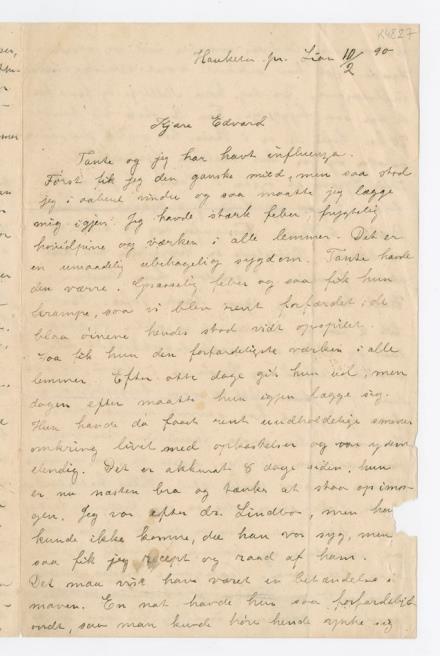 K4827
Hauketo pr. Lian 10/2 90
Kjære Edvard
Tante og jeg har havt influenza.
Først fik jeg den ganske mild, men saa stod
jeg i aabent vindu og saa maatte jeg lægge
mig igjen. Jeg havde stærk feber, frygtelig
hovedpine og værken i alle lemmer. Det er
en umaadelig ubehagelig sygdom. Tante havde
den værre. Spansselig feber og saa fik hun
krampe, saa vi blev rent forfærdet; de
blaa øinene hendes stod vidt opspilet.
Saa fik hun den forfærdeligste værken i alle
lemmer. Efter otte dage gik hun ud, men
dagen efter maatte hun igjen lægge sig.
Hun havde da faaet rent uudholdelige smerter
omkring livet med opkastelser og var yderst
elendig. Det er akkurat 8 dage siden, hun
er nu næsten bra og tænker at staa op imor-
gen. Jeg var efter dr. Lindboe, men han
kunde ikke komme, da han var syg, men
saa fik jeg recept og raad af ham.
Det maa vist have været en betændelse i
maven. En nat havde hun saa forfærdeligt
ondt, saa man kunde høre hende ynke sig